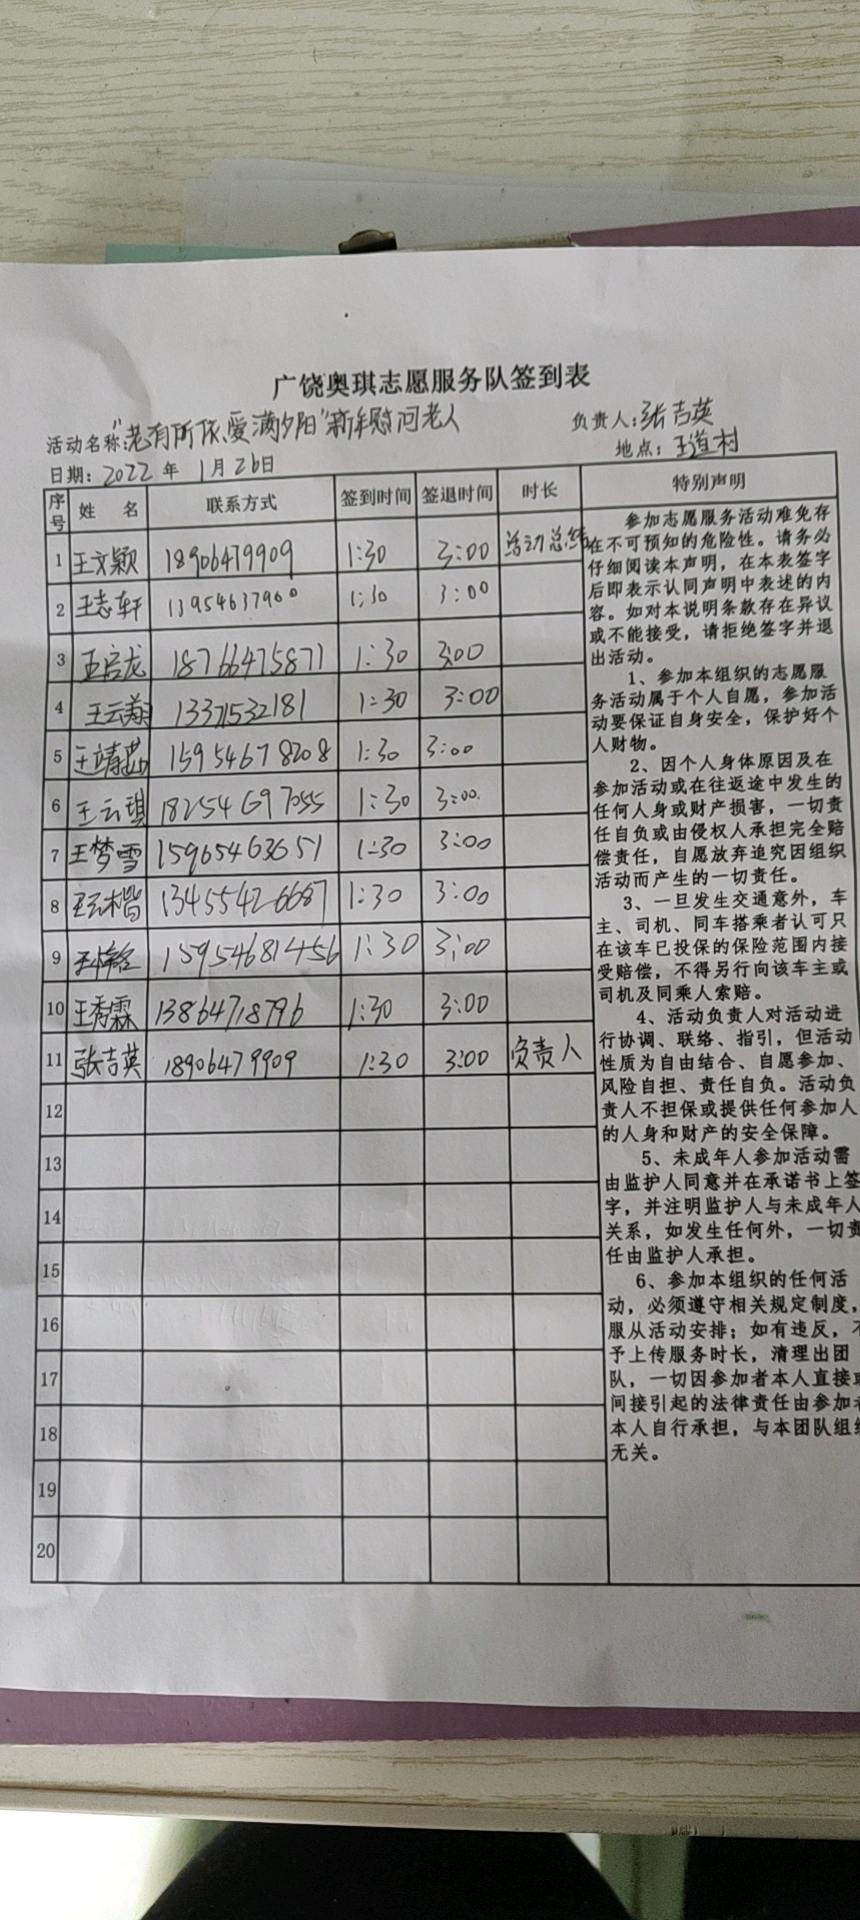 广饶奥琪志愿服务队签到表
活动名称:"老有所依,爱满夕阳"新年慰问老人
负责人:张吉英
日期: 2022 年 1月26日
地点: 王道村
序号 姓 名 联系方式 签到时间 签退时间 时长 特别声明
1 王文颖 18906479909 1:30 3:00 活动总结
2 王志轩 13954637900 1:30 3:00
3 王启龙 18766475871 1:30 3:00
4 王云翔 13371532181 1:30 3:00
5 王靖茹 15954678208 1:30 3:00
6 王云琪 18254697055 1:30 3:00
7 王梦雪 15965463651 1:30 3:00
8 王云楷 13455426687 1:30 3:00
9 15954681456 1:30 3:00
10 王秀霖 13864718796 1:30 3:00
11 张吉英 18906479909 1:30 3:00 负责人
12
13
14
15
16
17
18
19
20
参加志愿服务活动难免存
在不可预知的危险性。请务必
仔细阅读本声明，在本表签字
后即表示认同声明中表述的内
容。如对本说明条款存在异议
或不能接受，请拒绝签字并退
出活动。
1、参加本组织的志愿服
务活动属于个人自愿，参加活
动要保证自身安全，保护好个
人财物。
2、因个人身体原因及在
参加活动或在往返途中发生的
任何人身或财产损害，一切责
任自负或由侵权人承担完全赔
偿责任，自愿放弃追究因组织
活动而产生的一切责任。
3、一旦发生交通意外，车
主、司机、同车搭乘者认可只
在该车已投保的保险范围内接
受赔偿，不得另行向该车主或
司机及同乘人索赔。
4、活动负责人对活动进
行协调、联络、指引，但活动
性质为自由结合、自愿参加、
风险自担、责任自负。活动负
责人不担保或提供任何参加人
的人身和财产的安全保障。
5、未成年人参加活动需
由监护人同意并在承诺书上签
字，并注明监护人与未成年人
关系，如发生任何外，一切责
任由监护人承担。
6、参加本组织的任何活
动，必须遵守相关规定制度，
服从活动安排；如有违反，不
予上传服务时长，清理出团
队，一切因参加者本人直接或
间接引起的法律责任由参加者
本人自行承担，与本团队组织
无关。